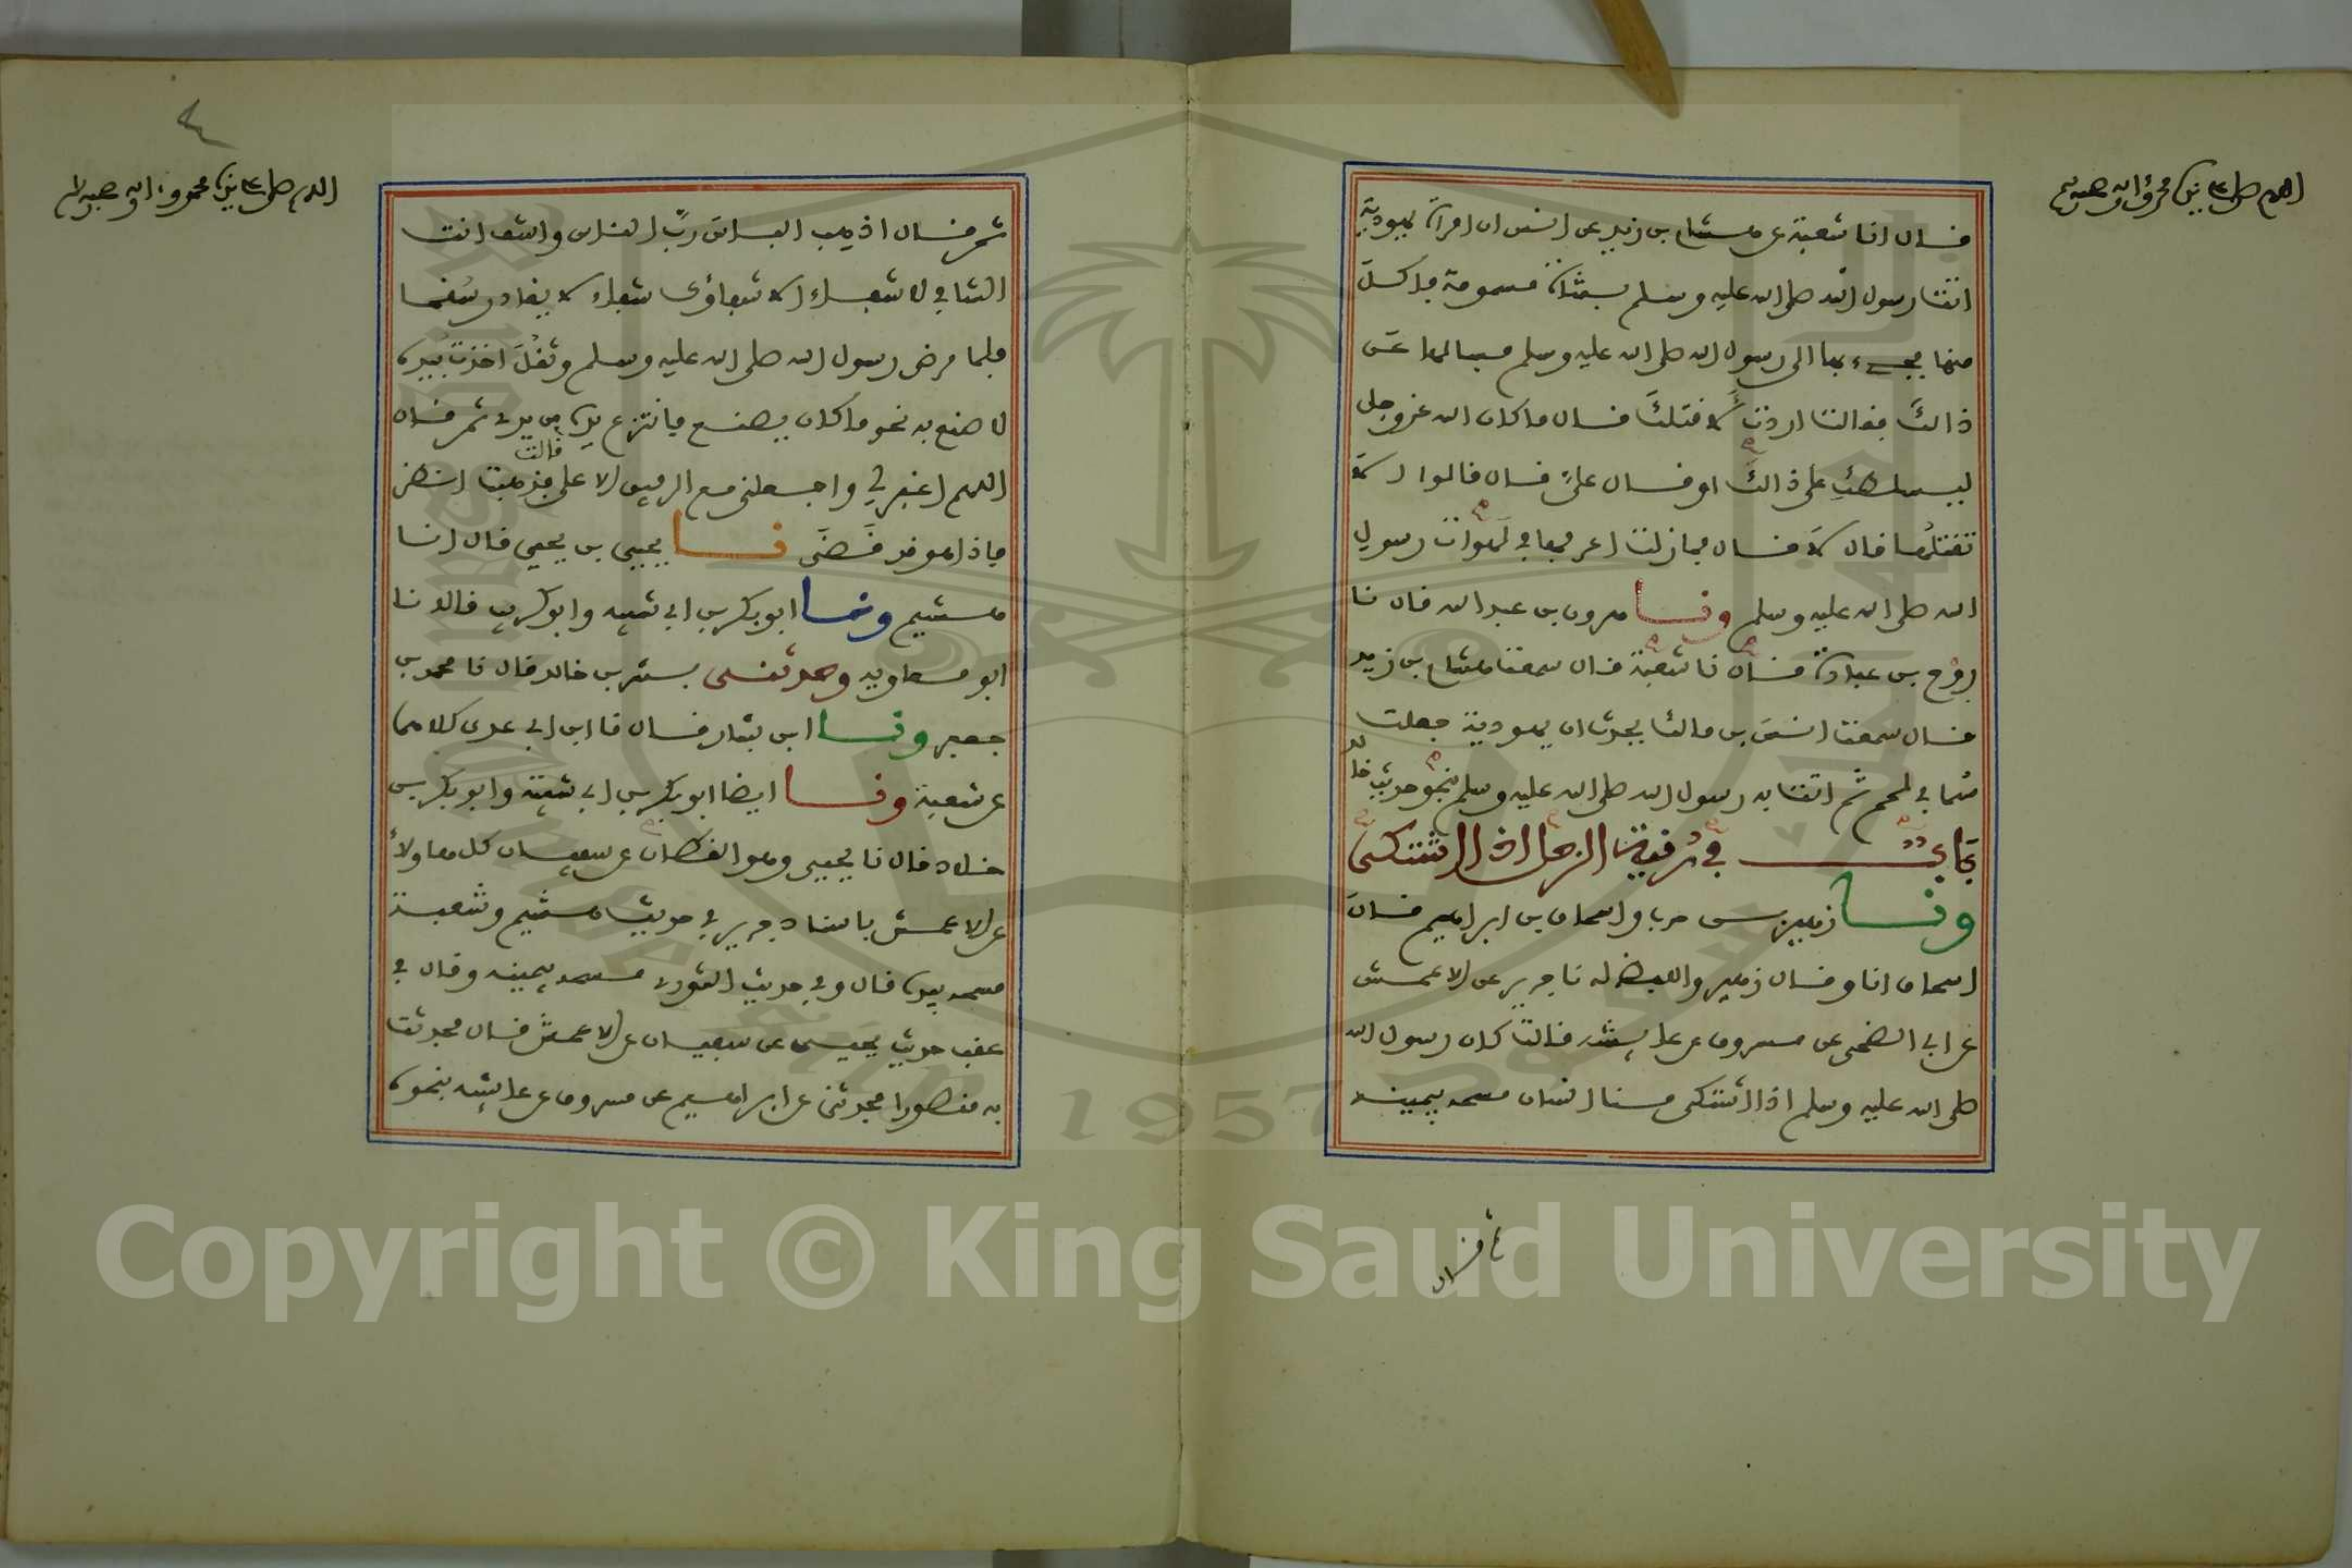 اللهم صل على نبينا محمد وآله وصحبه وسلم
قال انا شعبة عن هشام بن زيد عن انس ان امراة يهودية
اتت رسول الله صلى الله عليه وسلم بشاة مسمومة فاكل
منها فجيء بها الى رسول الله صلى الله عليه وسلم فسالها عن
ذالك فقالت اردت لاقتلك قال ما كان الله عز وجل
ليسلطك على ذالك او قال علي قال قالوا الا
تقتلها قال لا قال فما زلت اعرفها في لهوات رسول
الله صلى الله عليه وسلم ونا هرون بن عبد الله قال نا
روح بن عبادة قال نا شعبة قال سمعت هشام بن زيد
قال سمعت انس بن مالك يحدث ان يهودية جعلت
سما في لحم ثم اتت به رسول الله صلى الله عليه وسلم بنحو حديث خالد
باب في رقية الرجل اذا اشتكى
ونا زهير بن حرب واسحاق بن ابراهيم قال
اسحاق انا وقال زهير واللفظ له نا جرير عن الاعمش
عن ابي الضحى عن مسروق عن عايشة قالت كان رسول الله
صلى الله عليه وسلم اذا اشتكى منا انسان مسحه بيمينه
ثم قال
اللهم صل على نبينا محمد وآله وصحبه وسلم
٤
ثم قال اذهب الباس رب الناس واشف انت
الشافي لا شفاء الا شفاؤك شفاء لا يغادر سقما
فلما مرض رسول الله صلى الله عليه وسلم وثقل اخذت بيده
لاصنع به نحو ما كان يصنع فانتزع يده من يدي ثم قال
اللهم اغفر لي واجعلني مع الرفيق الاعلى قالت فذهبت انظر
فاذا هو قد قضى نا يحيى بن يحيى قال انا
هشيم ونا ابو بكر بن ابي شيبه وابو كريب قالا نا
ابو معاويه وحدثني بشر بن خالد قال نا محمد بن
جعفر ونا ابن بشار قال نا ابن ابي عدي كلاهما
عن شعبة ونا ايضا ابو بكر بن ابي شيبة وابو بكر بن
خلاد قال نا يحيى وهو القطان عن سفيان كل هاولاء
عن الاعمش باسناد جرير في حديث هشيم وشعبة
مسحه بيده قال وفي حديث الثوري مسحه بيمينه وقال في
عقب حديث يحيى عن سفيان عن الاعمش قال فحدثت
به منصورا فحدثني عن ابراهيم عن مسروق عن عايشه بنحوه
Copyright © King Saud University
1957